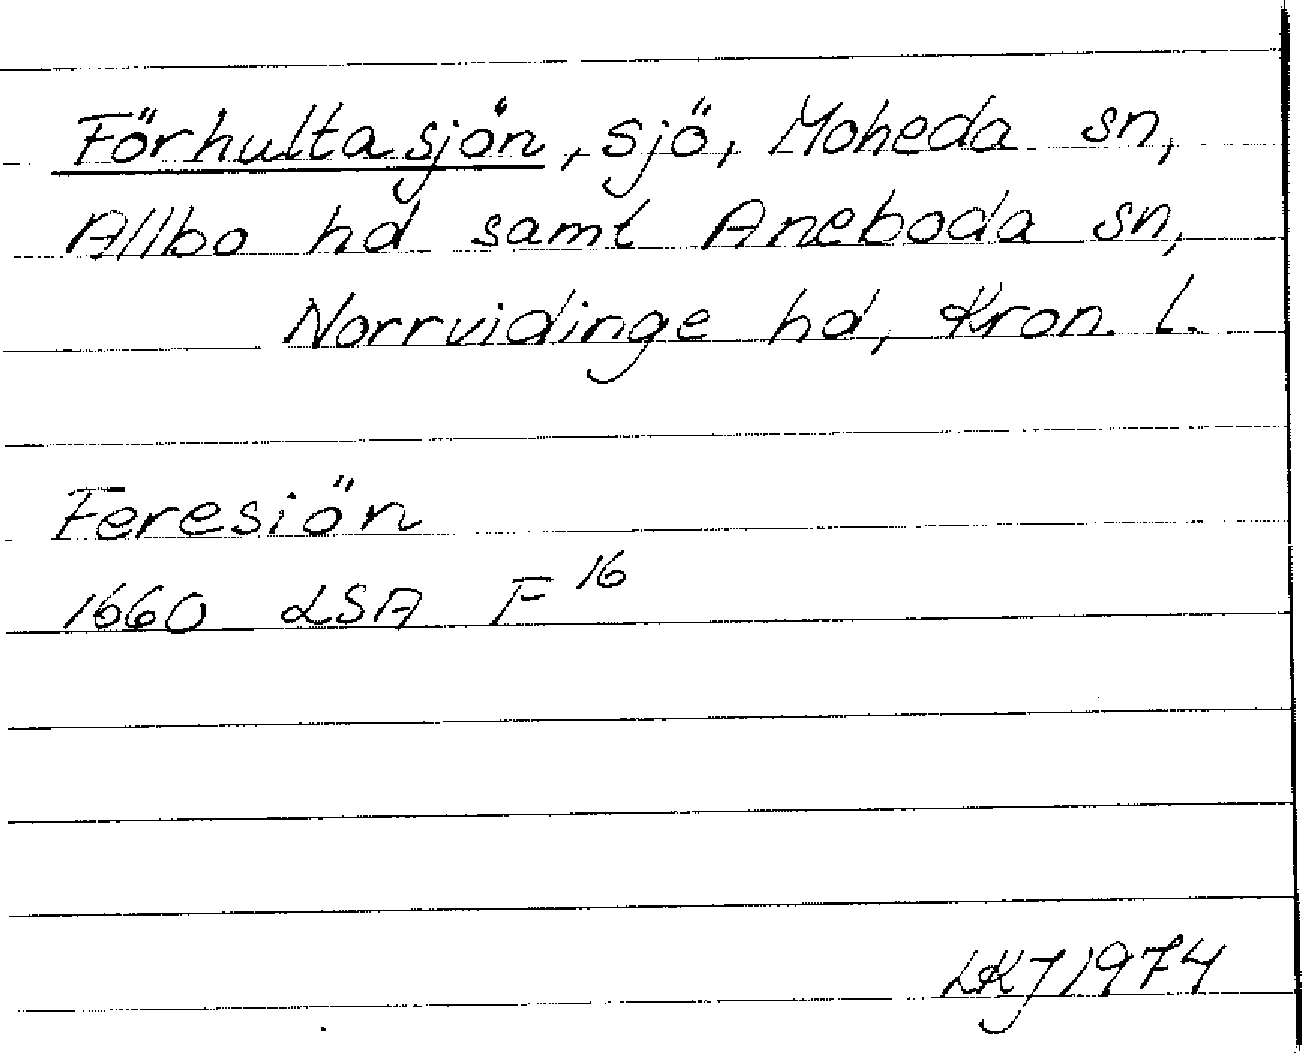 Förhultasjön, sjö, Moheda sn,
Allbo hd samt Aneboda sn,
Norrvidinge hd, Kron. l.
Feresiön
1660 LSA F 16
LKJ 1974